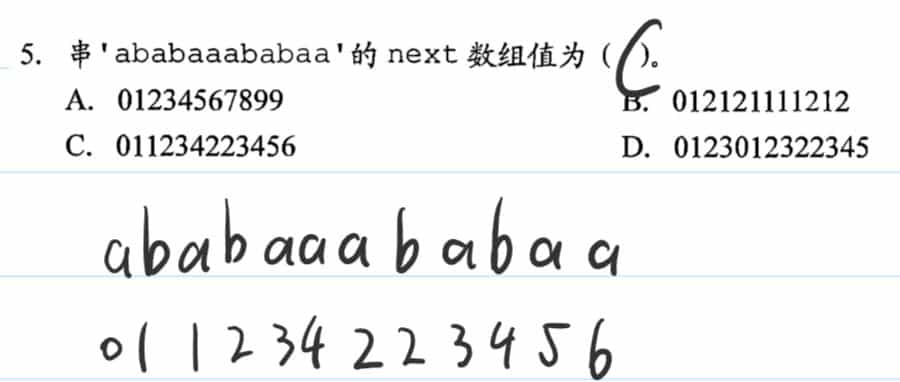 5. 串'ababaaababaa'的 next 数组值为 (C)。
A. 01234567899
B. 012121111212
C. 011234223456
D. 0123012322345
ababaaababaa
011234223456